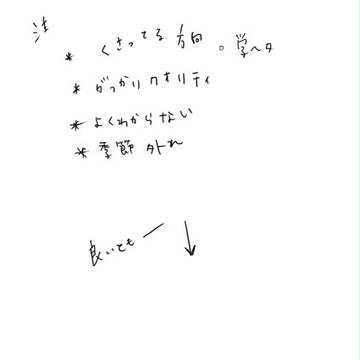 注
* くさってる方向。学ヘタ
* がっかりクオリティ
* よくわからない
* 季節外れ
良いともー ↓